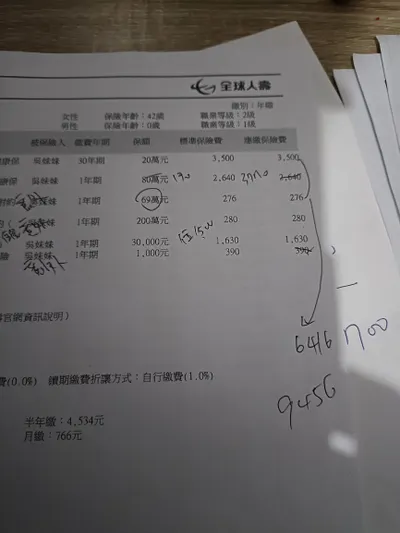 全球人壽
繳別：年繳
女性 保險年齡：42歲 職業等級：2級
男性 保險年齡：0歲 職業等級：1級
被保險人 繳費年期 保額 標準保險費 應繳保險費
康保 吳妹妹 30年期 20萬元 3,500 3,500
康保 吳妹妹 1年期 80萬元 2,640 2,640
附約 1年期 69萬元 276 276
1年期 200萬元 280 280
吳妹妹 1年期 30,000元 1,630 1,630
險 吳妹妹 1年期 1,000元 390 390
官網資訊說明）
6416 1700
9456
費(0.0%) 續期繳費折讓方式：自行繳費(1.0%)
半年繳：4,534元
月繳：766元